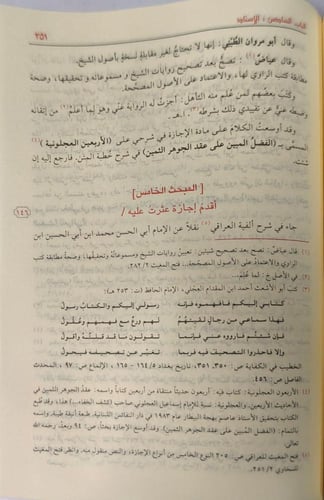 كتاب
٣٥١
وقال أبو مروان الطُّبْني: إنها لا تحتاجُ لغير مقابلةِ نسخةٍ بأصول الشيخ.
وقال عياضٌ(١): تصحُّ بعد تصحيح روايات الشيخ و مسموعاته و تحقيقها، وصحة
مطابقة كتب الراوي لهاء، والاعتماد على الأصول المصحَّحة.
وكتب بعضُهم لمن عُلم منه التأهل: أجزتُ له الرواية عنّي وهو لِما أعلمُ من إتقانه
وضبطه غنيٌّ عن تقييدي ذلك بشرطه. ا.هـ.
وقد أوسعتُ الكلامَ على مادة الإجازة في شرحي على (الأربعين العجلونية)
المسمَّى بـ (الفضل المبين على عقد الجوهر الثمين) في شرح خطبة المتن. فارجع إليه إن
شئت.
المبحث الخامس
أقدمُ إجازة عثرت عليه/
١٤٦
جاء في شرح ألفية العراقي نقلاً عن الإمام أبي الحسن محمد ابن أبي الحسين ابن
(١) قال عياضٌ: تصح بعد تصحيح شيئين: تعيين روايات الشيخ ومسموعاته وتحقيقها، وصحة مطابقة كتب
الراوي والاعتماد على الأصول المصححة. فتح المغيث ٢/ ٢٨٢.
(٢) في الأصل خ: لما عُلم..
(٣) كتب أبو الأشعث أحمد ابن المقدام العجلي، الإمام الحافظ (ت: ٢٥٣ هـ)
كتابي إليكم فافهموه فإنه رسولي إليكم والكتابُ رسولُ
فهذا سماعي من رجالٍ لقيتُهم لهم ورعٌ مع فهمهم وعقولُ
فإن شئتُم فارووه عني فإنما تقولون ما قد قلتُه وأقولُ
وإلا فاحذروا التصحيف فيه فربما تغيّر عن تصحيفه فيحولُ
الخطيب في الكفاية ص: ٣٥٠، ٣٥١، تاريخ بغداد ٥/ ١٦٤- ١٦٥، الإلماع ص: ٩٧، المحدث
الفاصل ص: ٤٥٦.
(٤) الأربعون العجلونية: كتاب فيه: أربعون حديثاً منتقاة من أربعين كتاباً واسمه: عقد الجوهر الثمين في
الأحاديث الأربعين، والعجلونية: نسبة للإمام إسماعيل العجلوني صاحب (كشف الخفاء). هذا؛ وقد طبع
الكتاب بتحقيق الأستاذ عاصم بهجة البيطار عام ١٩٨٣ في دار النفائس القشيبة، طبعة أنيقة طيبة، واسمه
بالتمام: (الفضل المبين على عقد الجوهر الثمين)، وقد توسع الإجازة بحثاً، ص: ٩٤ وبعدُ، رحمه الله
تعالى.
فتح المغيث للعراقي ص: ٢٠٥ النوع الخامس من أنواع الإجازة، والنص منقول منه. وانظر فتح المغيث
للسخاوي ٢/ ٢٥١.